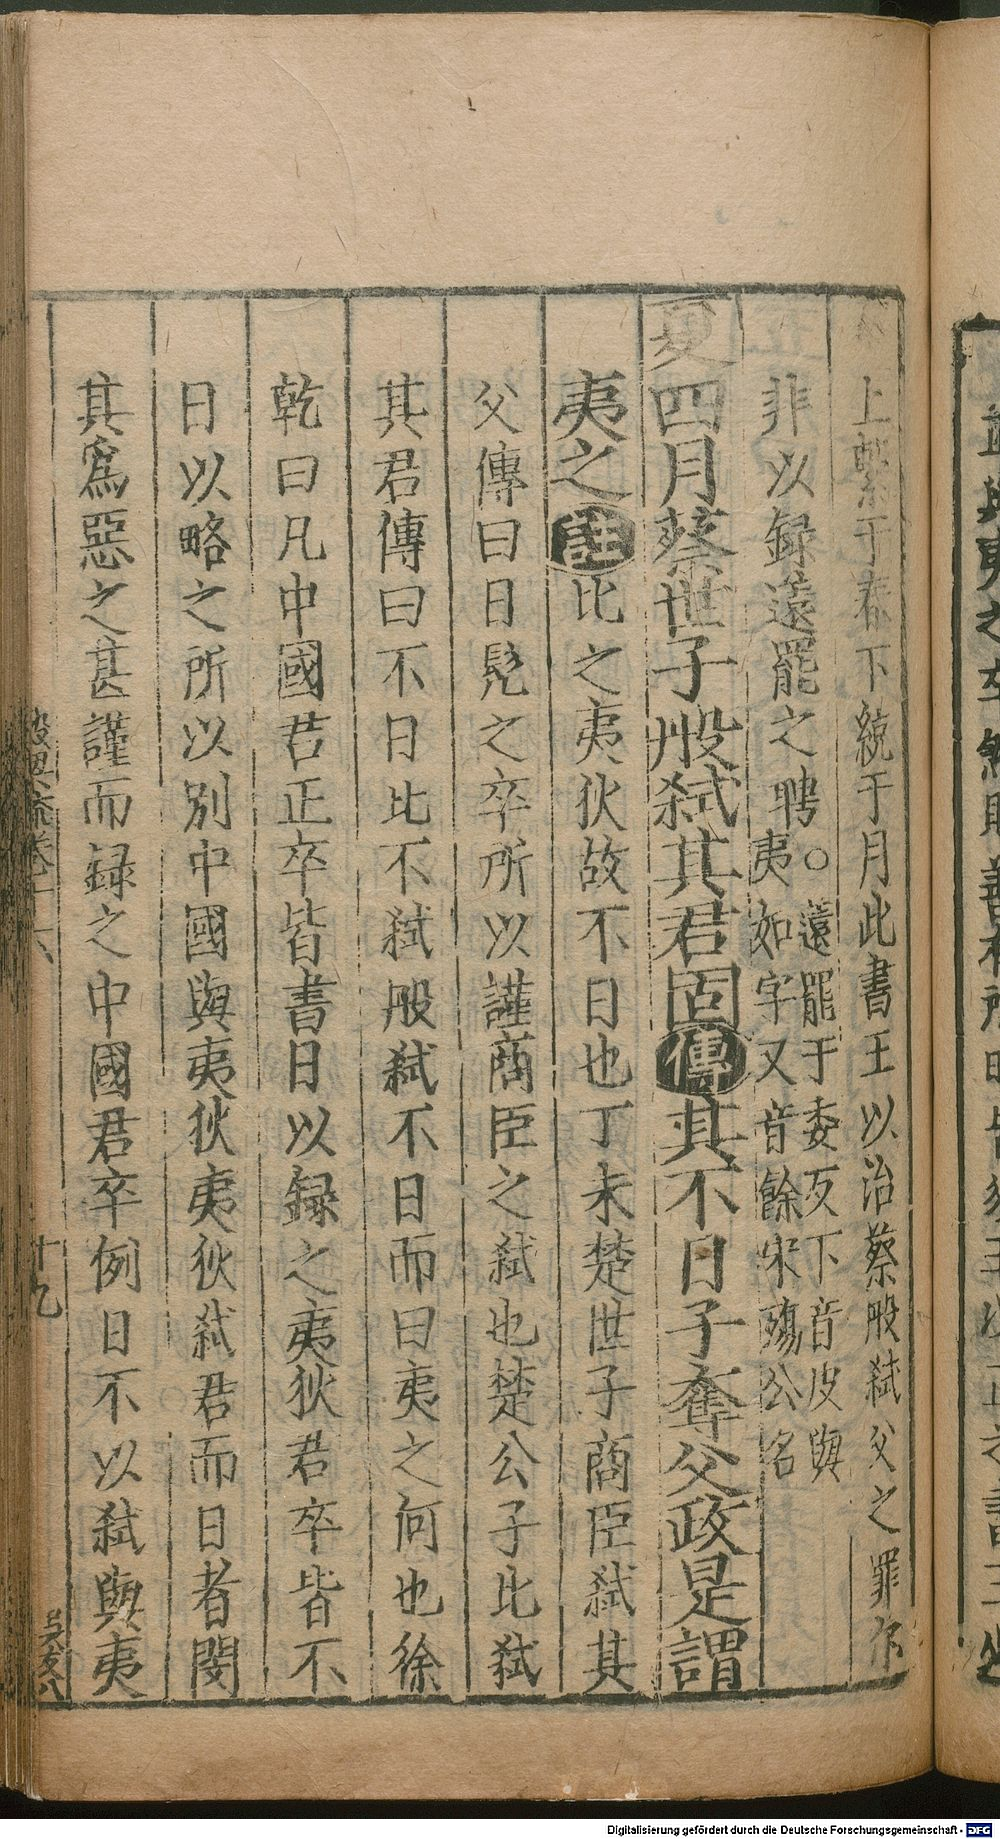 上繫于春下統于月此書王以治蔡般弒父之罪尓
非以録遠罷之聘○薳罷于委反下音皮與
夷如字又音餘宋殤公名
夏四月蔡世子般弒其君固傳其不日子奪父政是謂
夷之註比之夷狄故不日也丁未楚世子商臣弒其
父傳曰日髡之卒所以謹商臣之弒也楚公子比弒
其君傳曰不日比不弒般弒不日而曰夷之何也徐
乾曰凡中國君正卒皆書日以録之夷狄君卒皆不
日以略之所以別中國與夷狄夷狄弒君而日者閔
其爲惡之甚謹而録之中國君卒例日不以弒與夷
十九
Digitalisierung gefördert durch die Deutsche Forschungsgemeinschaft - DFG